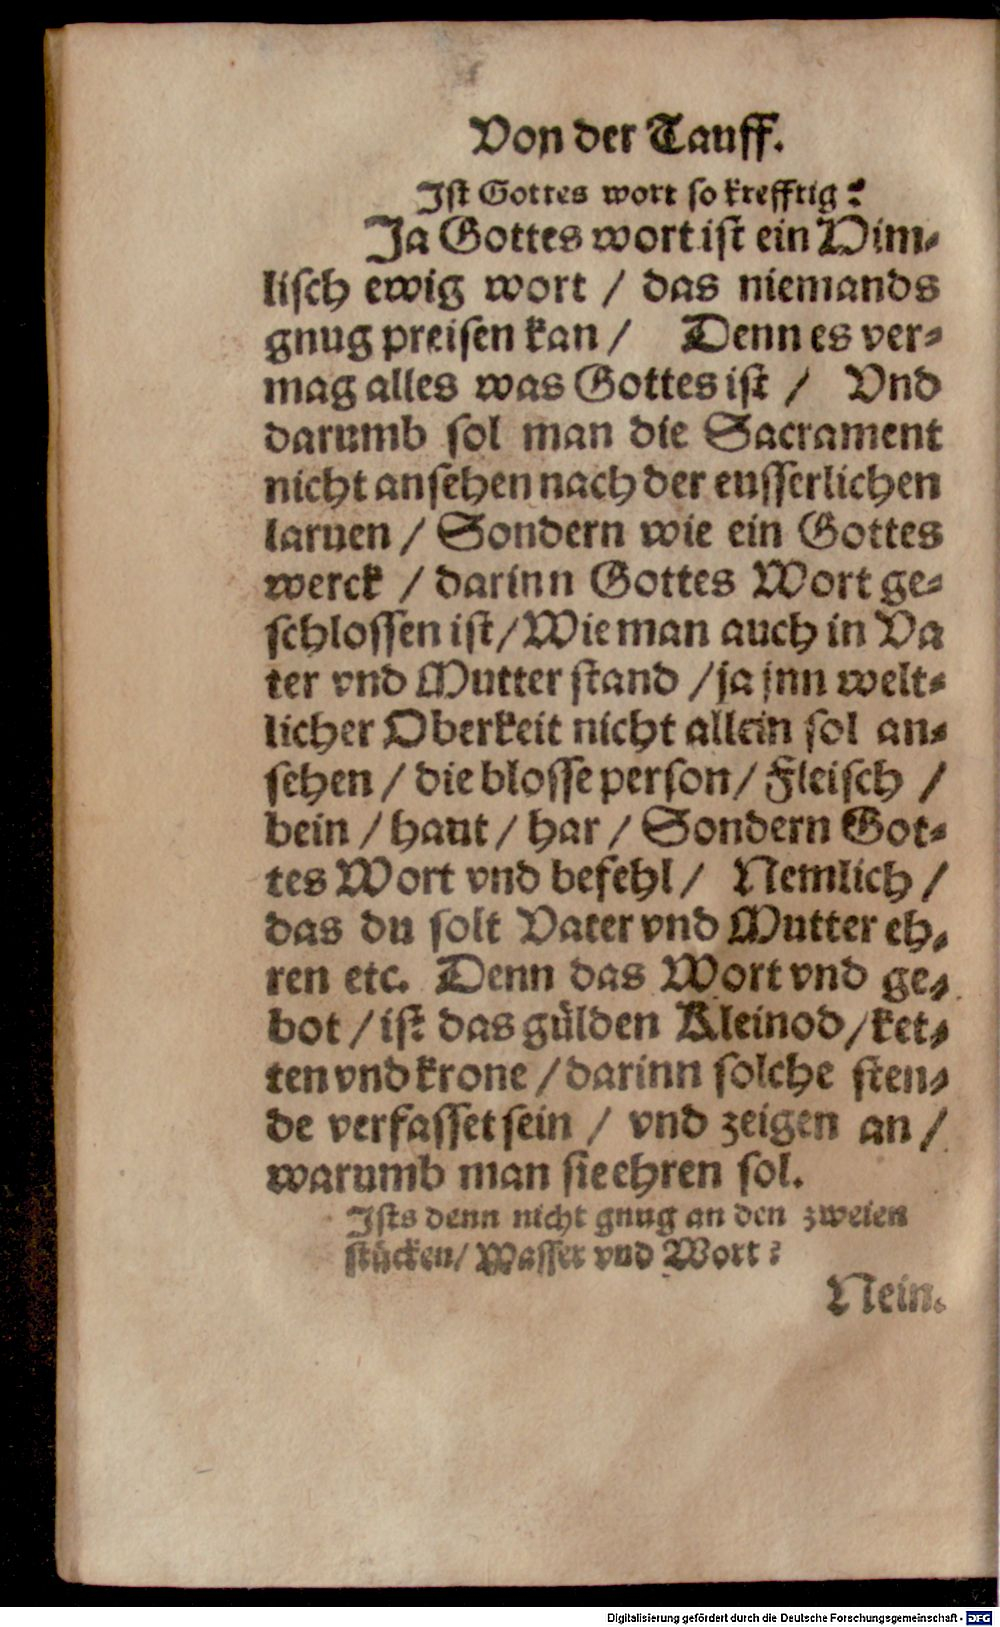 Von der Tauff.
Iſt Gottes wort ſo krefftig?
Ja Gottes wort iſt ein Him⸗
liſch ewig wort / das niemands
gnug preiſen kan / Denn es ver⸗
mag alles was Gottes iſt / Vnd
darumb ſol man die Sacrament
nicht anſehen nach der euſſerlichen
laruen / Sondern wie ein Gottes
werck / darinn Gottes Wort ge⸗
ſchloſſen iſt / Wie man auch in Va
ter vnd Mutter ſtand / ja jnn welt⸗
licher Oberkeit nicht allein ſol an⸗
ſehen / die bloſſe perſon / Fleiſch /
bein / haut / har / Sondern Got⸗
tes Wort vnd befehl / Nemlich /
das du ſolt Vater vnd Mutter eh⸗
ren etc. Denn das Wort vnd ge⸗
bot / iſt das gülden Kleinod / ket⸗
ten vnd krone / darinn ſolche ſten⸗
de verfaſſet ſein / vnd zeigen an /
warumb man ſie ehren ſol.
Iſts denn nicht gnug an den zweien
ſtücken / Waſſer vnd Wort?
Nein.
Digitalisierung gefördert durch die Deutsche Forschungsgemeinschaft - DFG